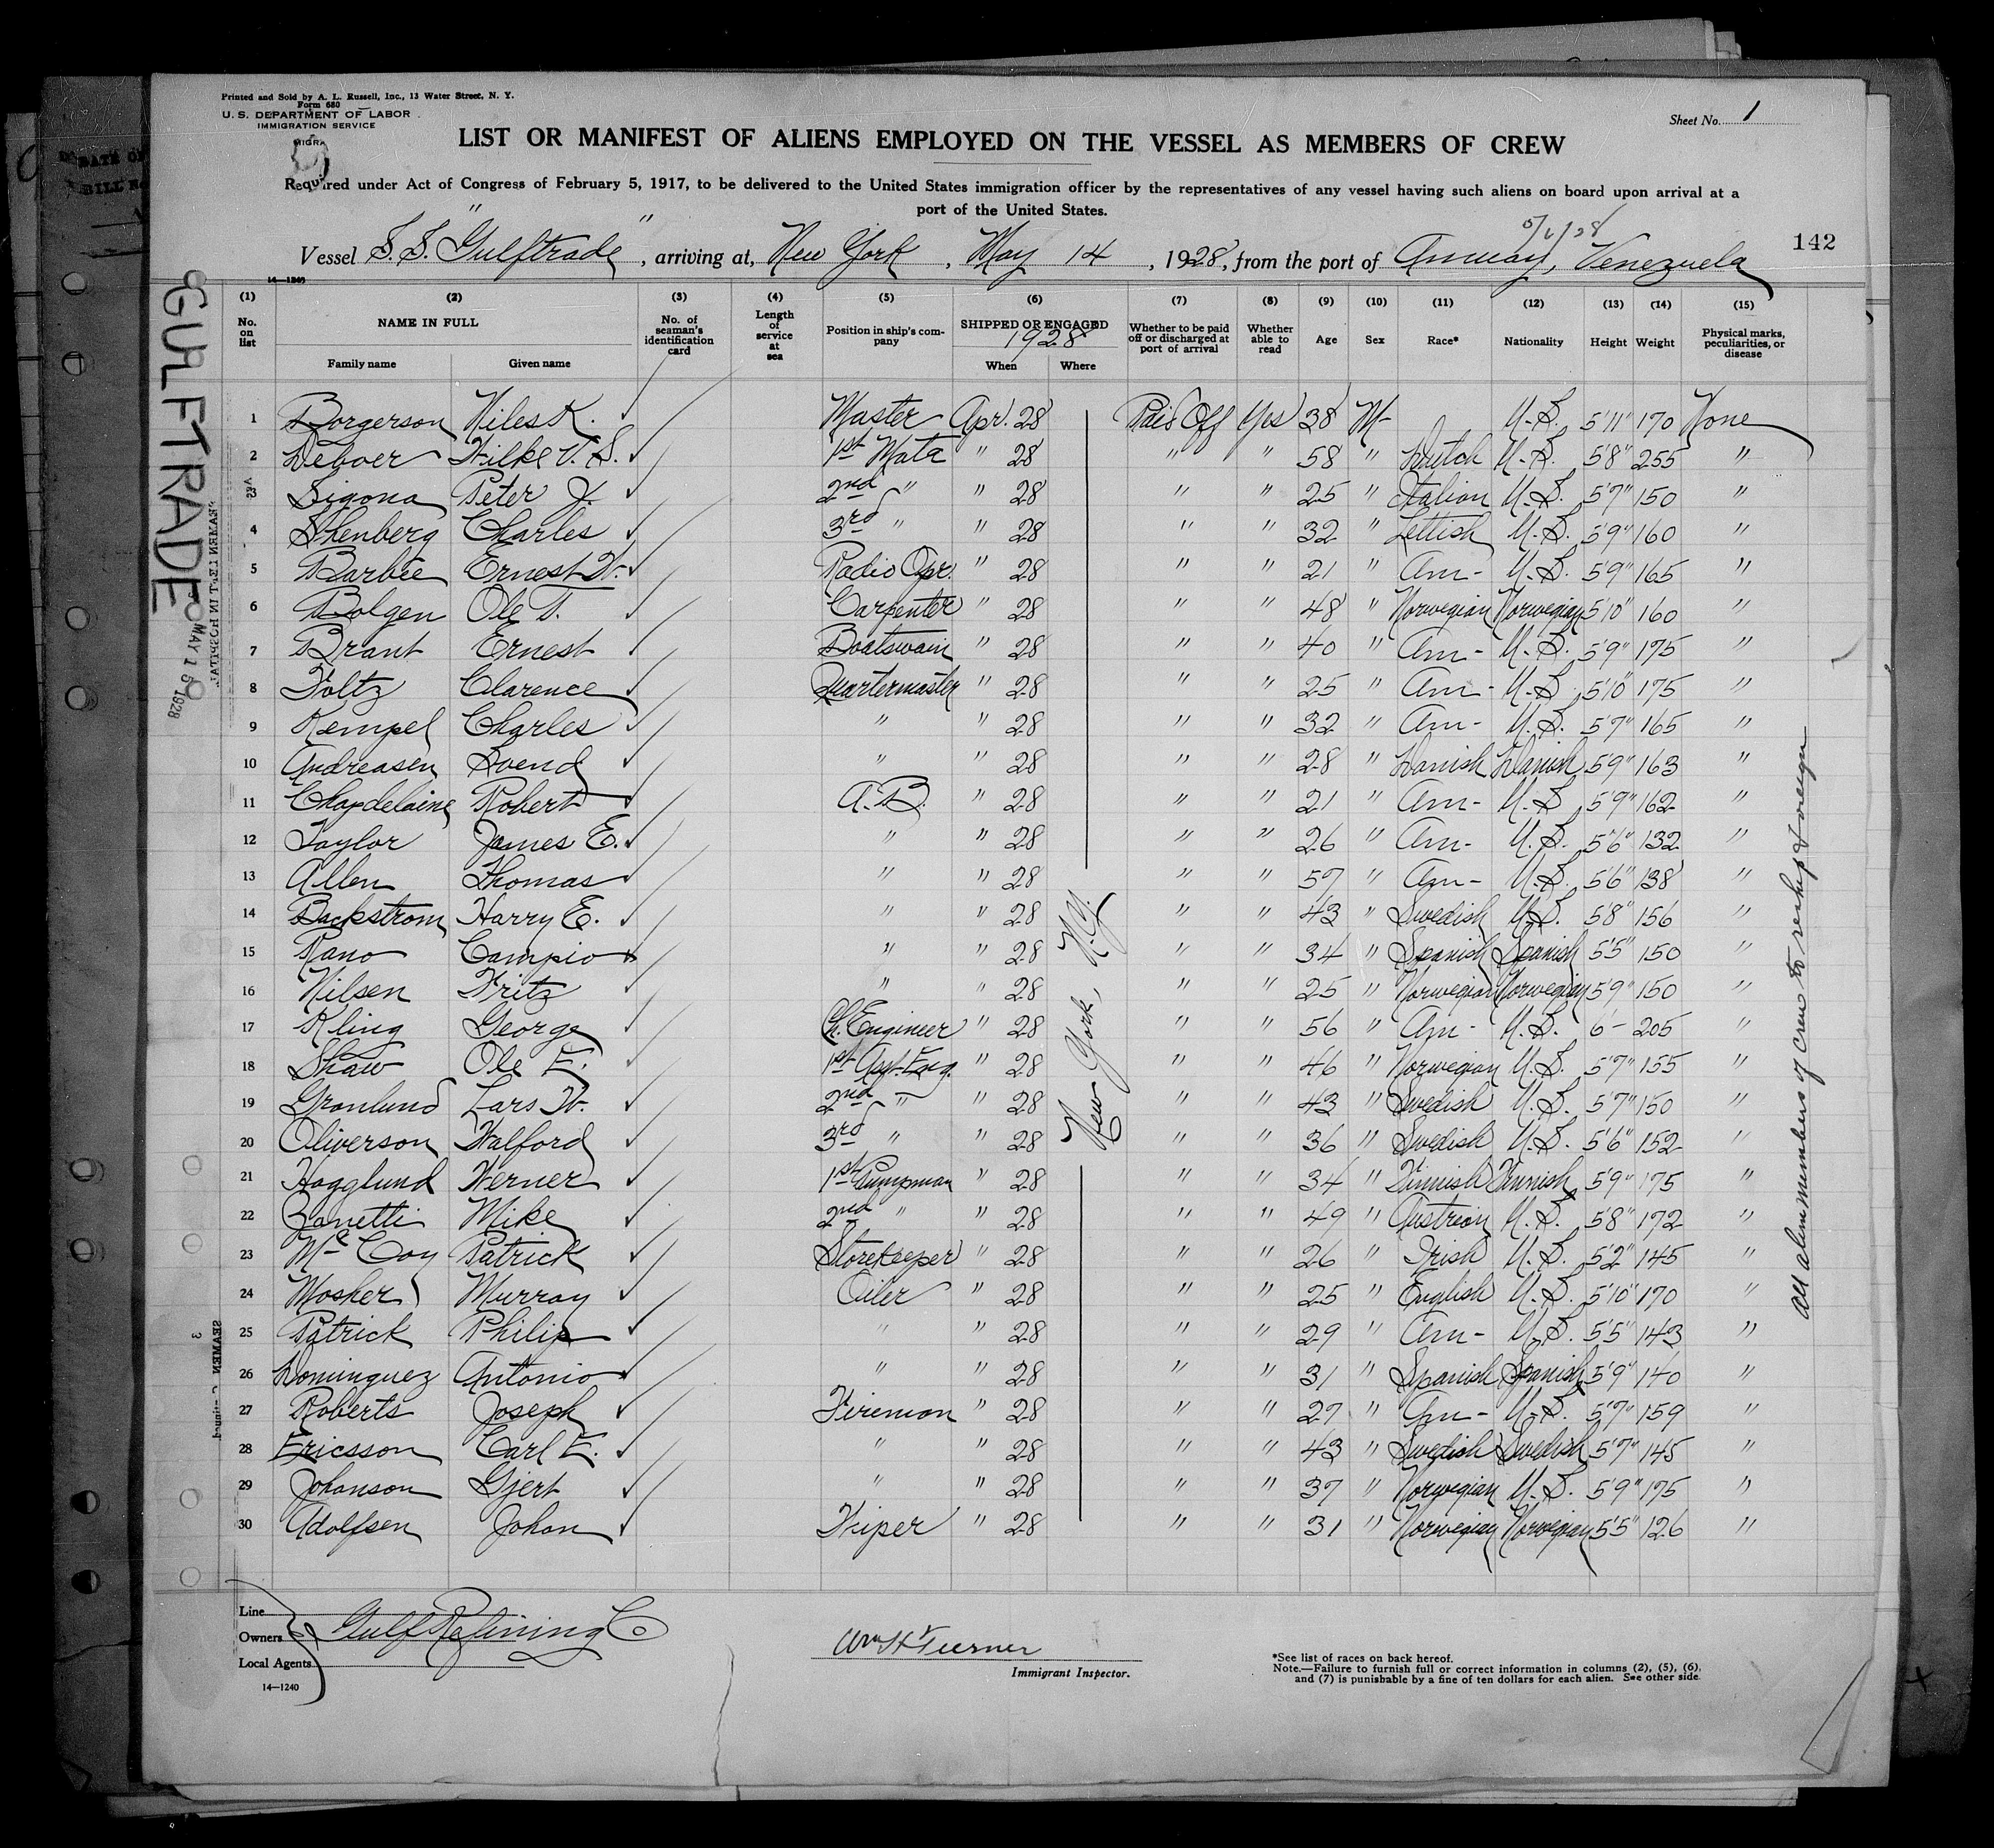 Printed and Sold by A. L. Russell, Inc., 13 Water Street, N. Y.
Form 680
U. S. DEPARTMENT OF LABOR
IMMIGRATION SERVICE
Sheet No. 1
LIST OR MANIFEST OF ALIENS EMPLOYED ON THE VESSEL AS MEMBERS OF CREW
Required under Act of Congress of February 5, 1917, to be delivered to the United States immigration officer by the representatives of any vessel having such aliens on board upon arrival at a
port of the United States.
5/6/28
142
Vessel S.S. "Gulftrade", arriving at, New York, May 14, 1928, from the port of Amuay, Venezuela
14—1240
(1) (2) (3) (4) (5) (6) (7) (8) (9) (10) (11) (12) (13) (14) (15)
No. on list NAME IN FULL Family name Given name No. of seaman's identification card Length of service at sea Position in ship's company SHIPPED OR ENGAGED 1928 When Where Whether to be paid off or discharged at port of arrival Whether able to read Age Sex Race* Nationality Height Weight Physical marks, peculiarities, or disease
1 Borgerson Niles K. Master Apr. 28 Paid Off Yes 38 M- U.S. 5'11" 170 None
2 Deboer Wilke V. S. 1st Mate " 28 " " 58 " Dutch U.S. 5'8" 255 "
3 Sigona Peter J. 2nd " " 28 " " 25 " Italian U.S. 5'7" 150 "
4 Shenberg Charles 3rd " " 28 " " 32 " Lettish U.S. 5'9" 160 "
5 Barbee Ernest W. Radio Opr. " 28 " " 21 " Am- U.S. 5'9" 165 "
6 Bolgen Ole T. Carpenter " 28 " " 48 " Norwegian Norwegian 5'10" 160 "
7 Brant Ernest Boatswain " 28 " " 40 " Am- U.S. 5'9" 175 "
8 Foltz Clarence Quartermaster " 28 " " 25 " Am- U.S. 5'10" 175 "
9 Kempel Charles " " 28 " " 32 " Am- U.S. 5'7" 165 "
10 Andreasen Svend " " 28 " " 28 " Danish Danish 5'9" 163 "
11 Chapdelaine Robert A.B. " 28 " " 21 " Am- U.S. 5'9" 162 "
12 Taylor James E. " " 28 " " 26 " Am- U.S. 5'6" 132 "
13 Allen Thomas " " 28 " " 57 " Am- U.S. 5'6" 138 "
14 Backstrom Harry E. " " 28 " " 43 " Swedish U.S. 5'8" 156 "
15 Rano Campio " " 28 " " 34 " Spanish Spanish 5'5" 150 "
16 Nilsen Fritz " " 28 " " 25 " Norwegian Norwegian 5'9" 150 "
17 Kling George Ch. Engineer " 28 " " 56 " Am- U.S. 6'- 205 "
18 Shaw Ole E. 1st Asst. Eng. " 28 " " 46 " Norwegian U.S. 5'7" 155 "
19 Granlund Lars W. 2nd " " 28 " " 43 " Swedish U.S. 5'7" 150 "
20 Oliverson Halford 3rd " " 28 " " 36 " Swedish U.S. 5'6" 152 "
21 Hagglund Werner 1st Pumpman " 28 " " 34 " Finnish Finnish 5'9" 175 "
22 Zanetti Mike 2nd " " 28 " " 49 " Austrian U.S. 5'8" 172 "
23 McCoy Patrick Storekeeper " 28 " " 26 " Irish U.S. 5'2" 145 "
24 Mosher Murray Oiler " 28 " " 25 " English U.S. 5'10" 170 "
25 Patrick Philip " " 28 " " 29 " Am- U.S. 5'5" 143 "
26 Dominguez Antonio " " 28 " " 31 " Spanish Spanish 5'9" 140 "
27 Roberts Joseph Fireman " 28 " " 27 " Am- U.S. 5'7" 159 "
28 Ericsson Carl E. " " 28 " " 43 " Swedish Swedish 5'7" 145 "
29 Johanson Gjert " " 28 " " 37 " Norwegian U.S. 5'9" 175 "
30 Adolfsen Johan Wiper " 28 " " 31 " Norwegian Norwegian 5'5" 126 "
New York, N.Y.
All alien members of crew to reship foreign
GULFTRADE
MAY 15 1928
SEAMEN
Line
Owners Gulf Refining Co
Local Agents
14—1240
Wm H Turner
Immigrant Inspector.
*See list of races on back hereof.
Note.—Failure to furnish full or correct information in columns (2), (5), (6),
and (7) is punishable by a fine of ten dollars for each alien. See other side.